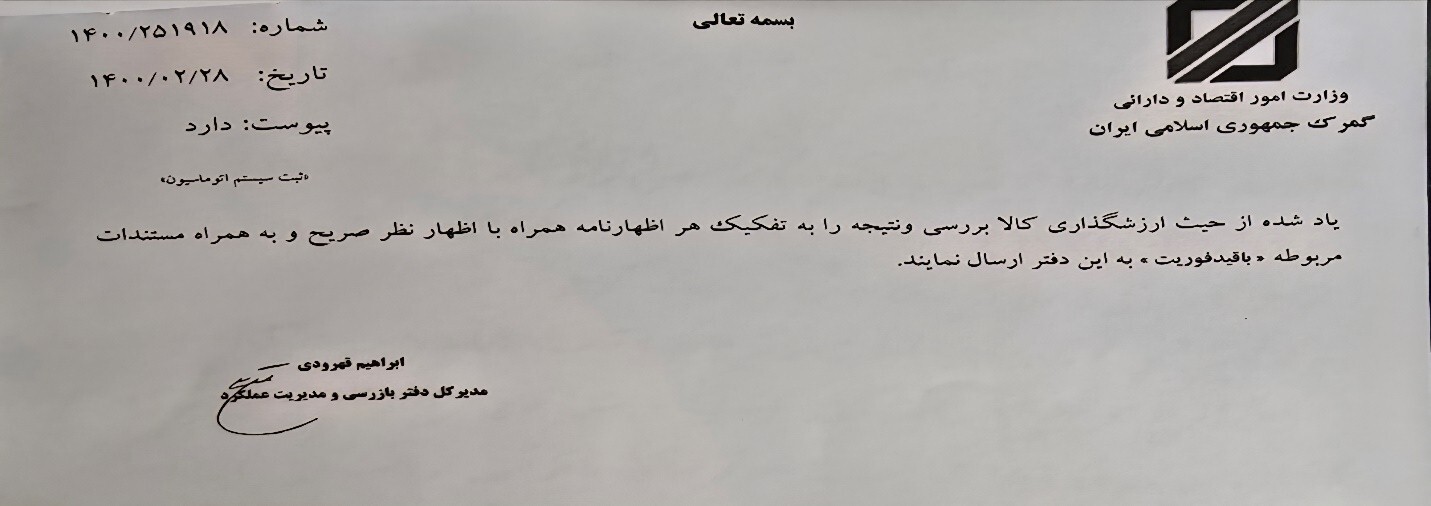 بسمه تعالی
وزارت امور اقتصاد و دارائی
گمرک جمهوری اسلامی ایران
شماره: ۱۴۰۰/۲۵۱۹۱۸
تاریخ: ۱۴۰۰/۰۲/۲۸
پیوست: دارد
«ثبت سیستم اتوماسیون»
یاد شده از حیث ارزشگذاری کالا بررسی ونتیجه را به تفکیک هر اظهارنامه همراه با اظهار نظر صریح و به همراه مستندات
مربوطه «باقیدفوریت» به این دفتر ارسال نمایند.
ابراهیم قهرودی
مدیرکل دفتر بازرسی و مدیریت عملکرد